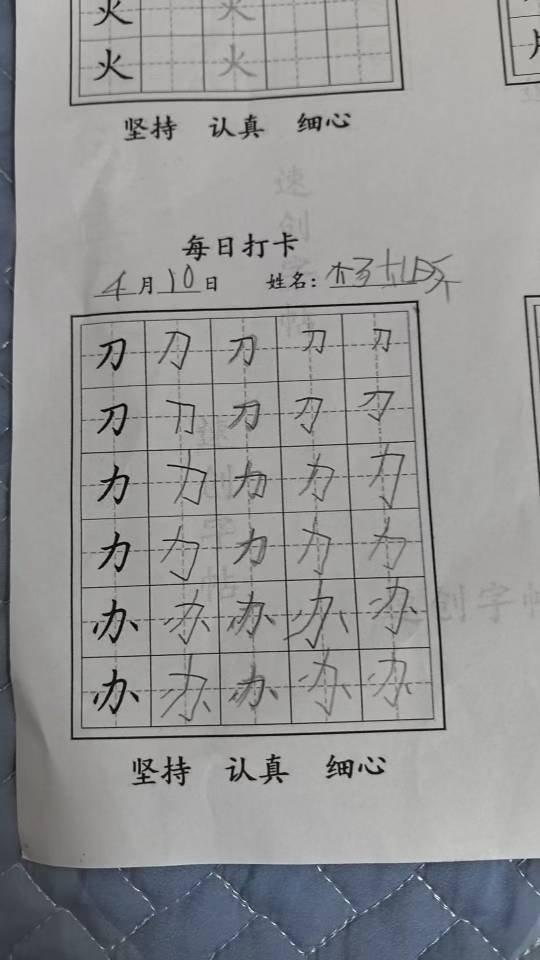 火 火
火 火
坚持 认真 细心
速创字帖
每日打卡
4月10日 姓名:
刀 刀 刀 刀 刀
刀 刀 刀 刀 刀
力 力 力 力 力
力 力 力 力 力
办 办 办 办 办
办 办 办 办 办
速创字帖
创字帖
坚持 认真 细心